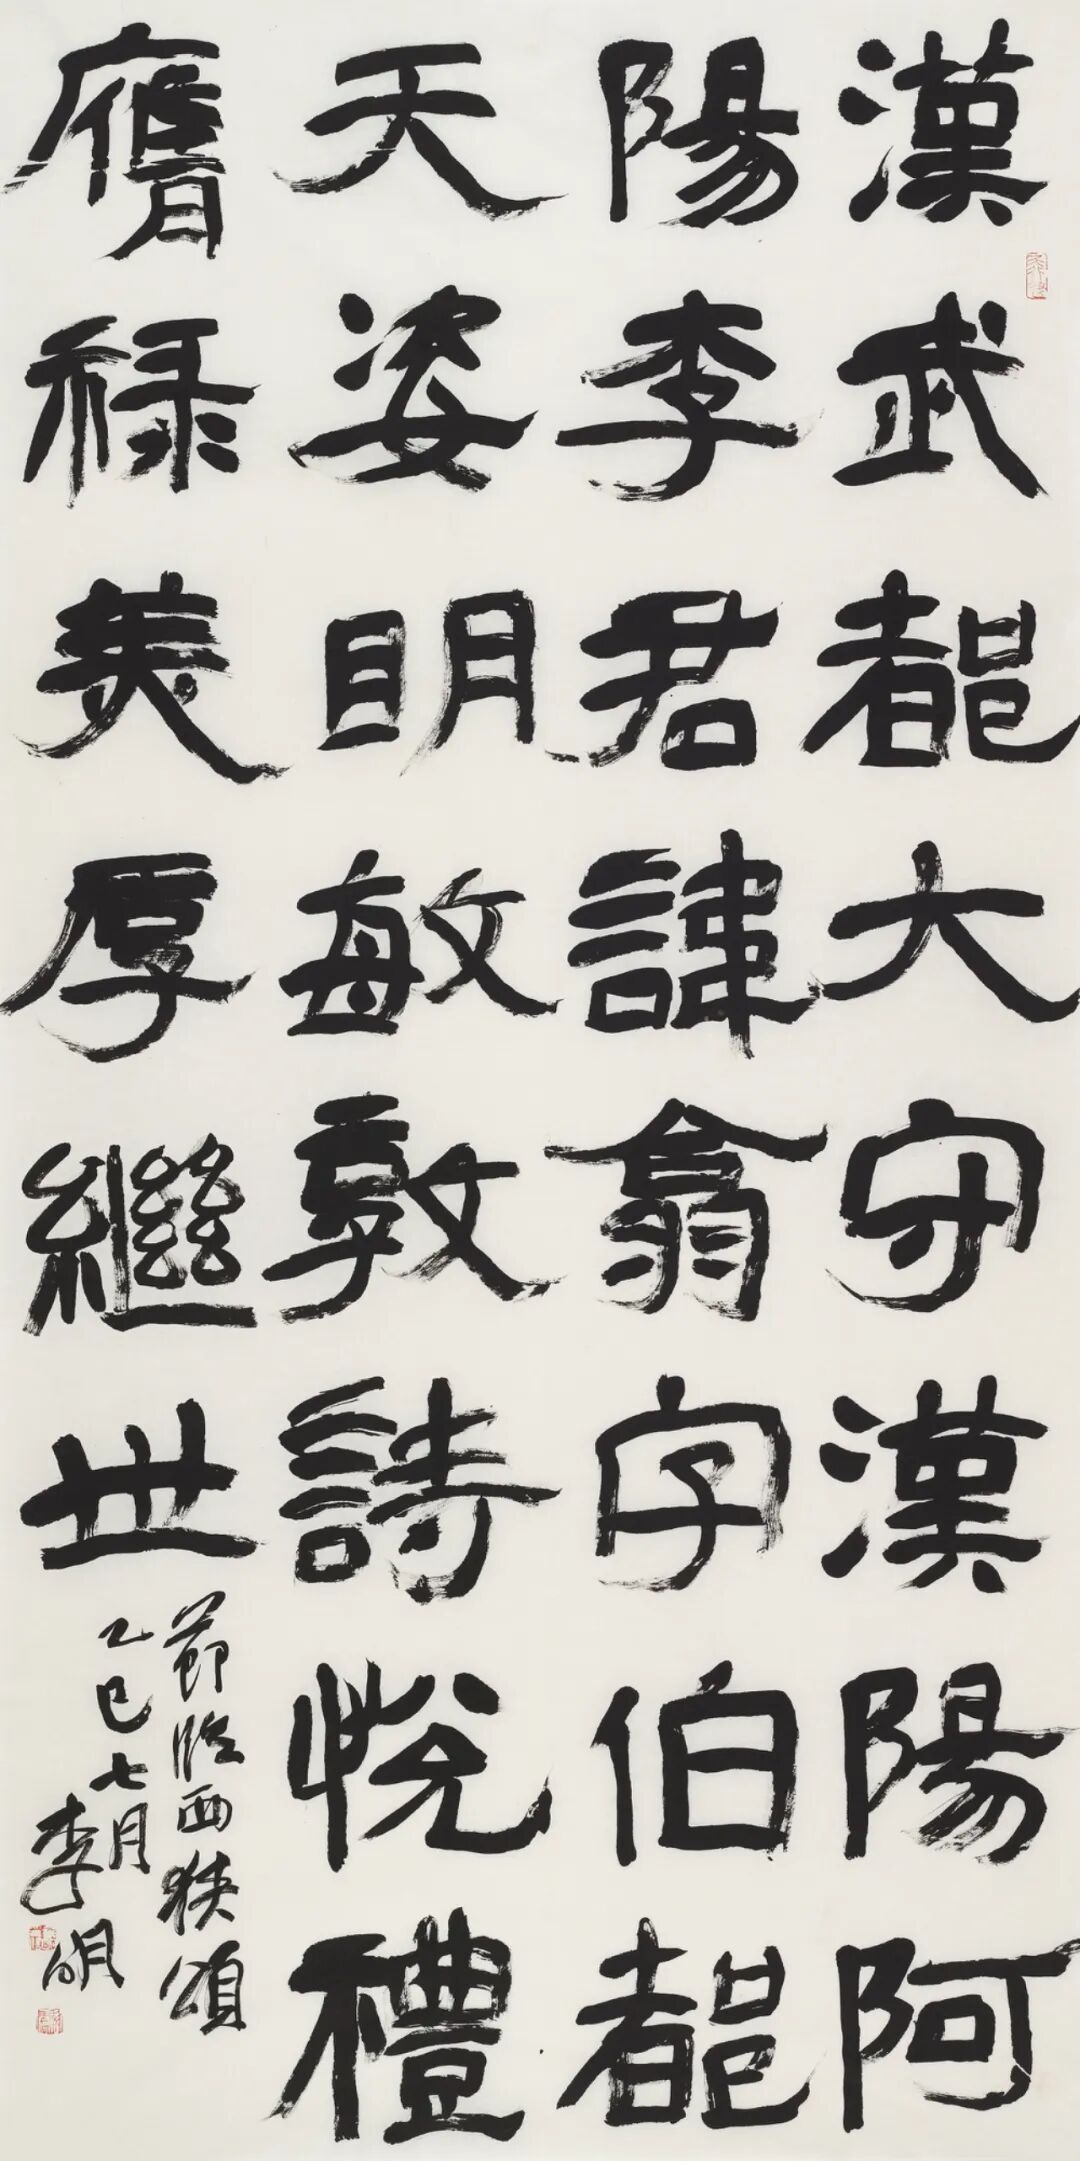 漢武都大守漢陽阿
陽李君諱翕字伯都
天姿明敏敦詩悅禮
膺祿美厚繼世
節臨西狹頌
乙巳七月
李明